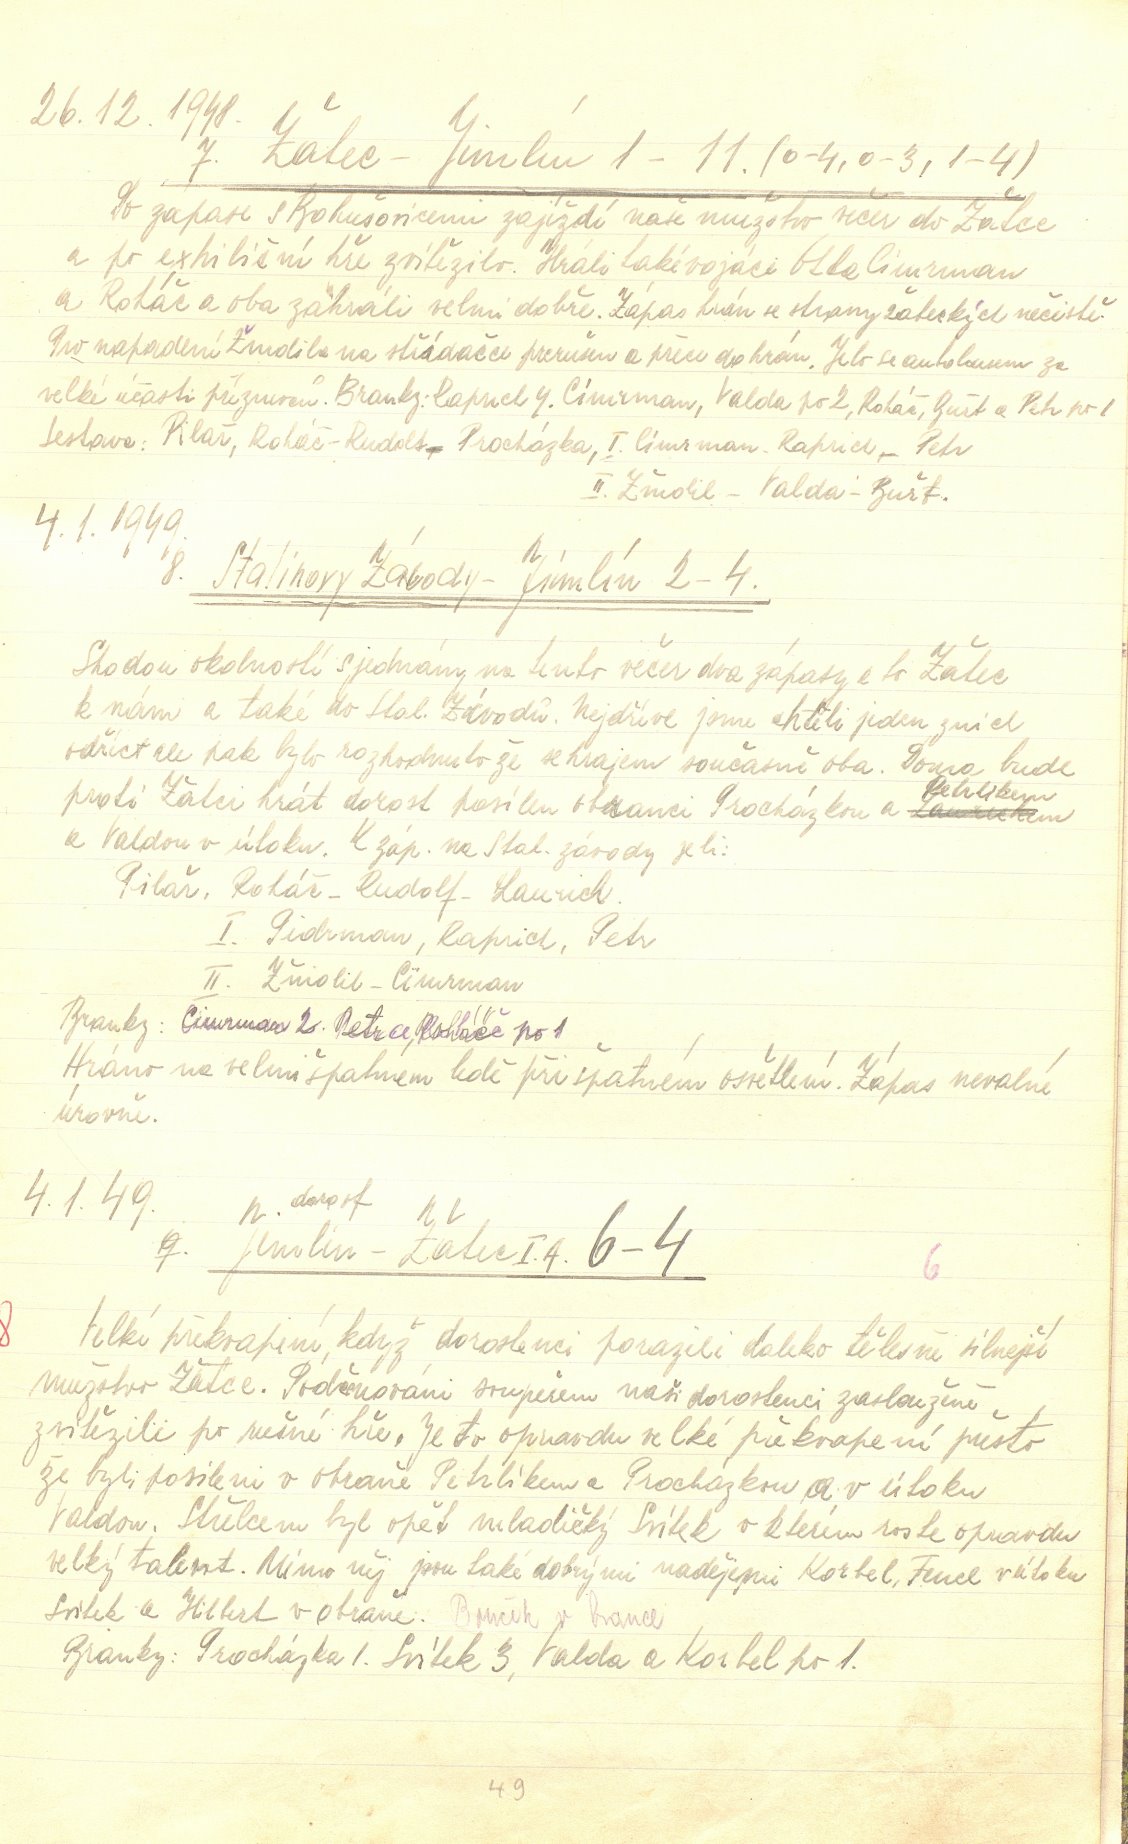 26.12.1948.
7. Žatec – Jimlín 1 – 11. (0–4, 0–3, 1–4)
Po zápase s Bohušovicemi zajíždí naše mužstvo večer do Žatce
a po exhibiční hře zvítězilo. Hráli také vojáci Otta Cimrman
a Roháč a oba zahráli velmi dobře. Zápas hrán se strany žateckých nečistě.
Pro napadení Žmolila na střídačce přerušen a přece dohrán. Jelo se autobusem za
velké účasti příznivců. Branky: Raprich 4. Cimrman, Valda po 2, Roháč, Buřt a Petr po 1
Sestava: Pilař, Roháč – Rudolf – Procházka, I. Cimrman – Raprich – Petr
II. Žmolil – Valda – Buřt.
4.1.1949.
8. Stalinovy Závody – Jimlín 2 – 4.
Shodou okolností sjednány na tento večer dva zápasy a to Žatec
k nám a také do Stal. Závodů. Nejdříve jsme chtěli jeden z nich
odříct ale pak bylo rozhodnuto že sehrajem současně oba. Doma bude
Petrlíkem
proti Žatci hrát dorost posílen obranci Procházkou a
a Valdou v útoku. K záp. na Stal. závody jeli:
Pilař, Roháč – Rudolf – Laurich.
I. Pidrman, Raprich, Petr
II. Žmolil – Cimrman
Branky: Cimrman 2. Petr a Roháč po 1
Hráno na velmi špatném ledě při špatném osvětlení. Zápas nevalné
úrovně.
4.1.49.
dorost
9. Jimlín – Žatec I.A. 6–4
6
8
Velké překvapení, když dorostenci porazili daleko tělesně silnější
mužstvo Žatce. Podceňováni soupeřem naši dorostenci zaslouženě
zvítězili po rušné hře. Je to opravdu velké překvapení přesto
že byli posíleni v obraně Petrlíkem a Procházkou a v útoku
Valdou. Střelcem byl opět mladičký Svítek v kterém roste opravdu
velký talent. Mimo něj jsou také dobrými nadějemi Korbel, Fencl v útoku
Svítek a Hilbert v obraně. Bouček v brance
Branky: Procházka 1. Svítek 3, Valda a Korbel po 1.
49